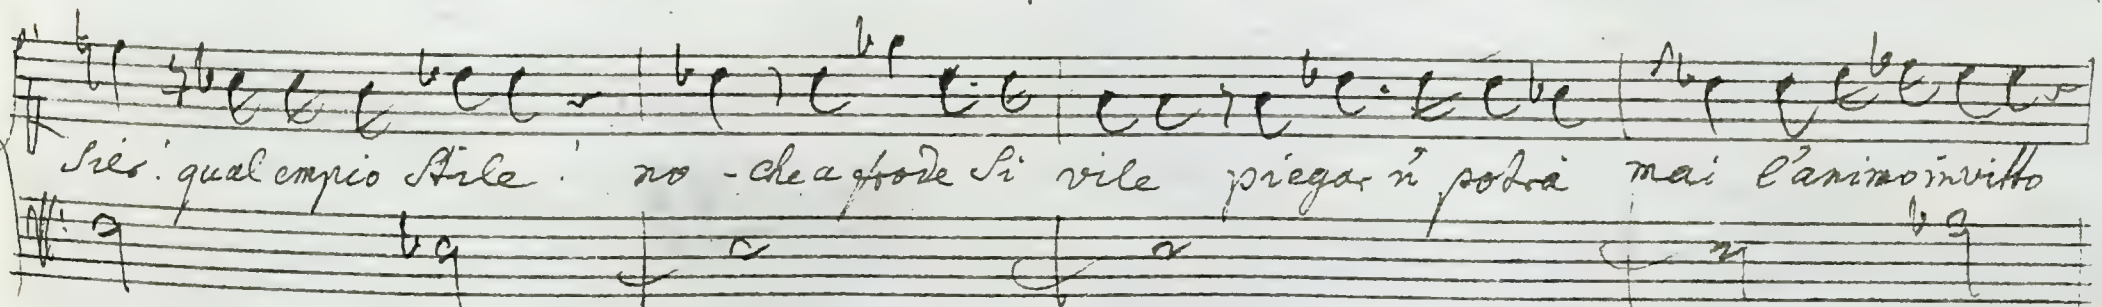 sier: qual empio stile! no - che a frode si vile piegar ñ potrà mai l'animo invitto